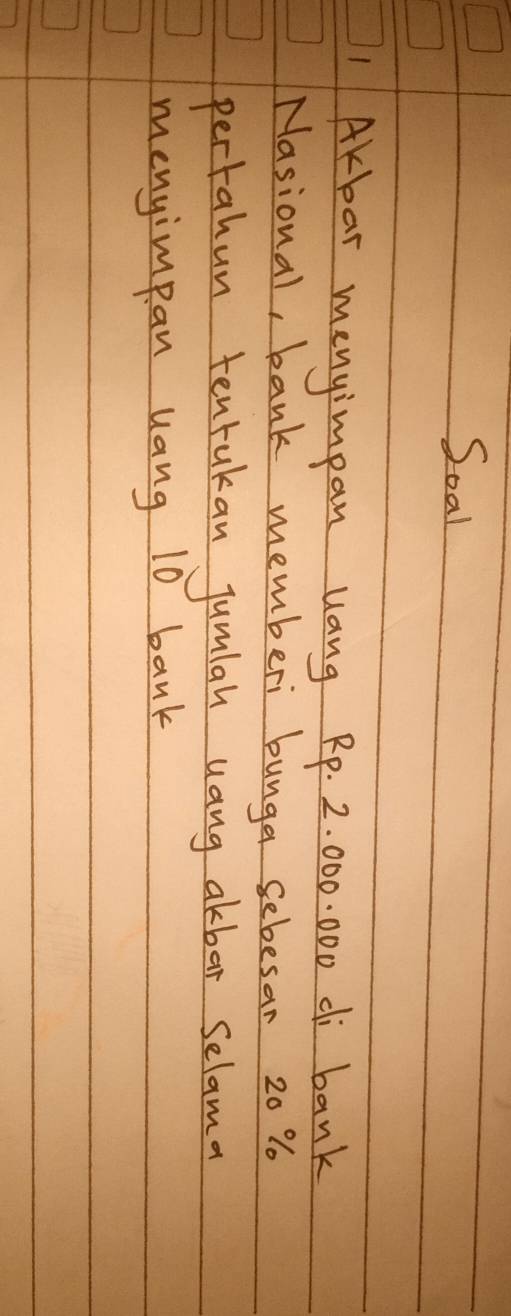 Soal
1 Akbar menyimpan uang Rp. 2.000.000 di bank
Nasional, bank memberi bunga sebesar 20%
pertahun tentukan jumlah uang akbar selama
menyimpan uang 10 bank